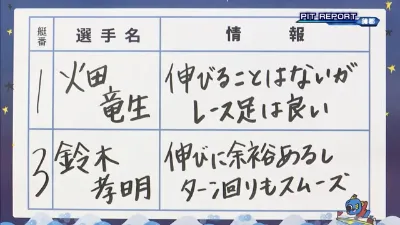 PIT REPORT
艇番 選手名 情報
1 畑田竜生 伸びることはないが
レース足は良い
3 鈴木孝明 伸びに余裕あるし
ターン回りもスムーズ